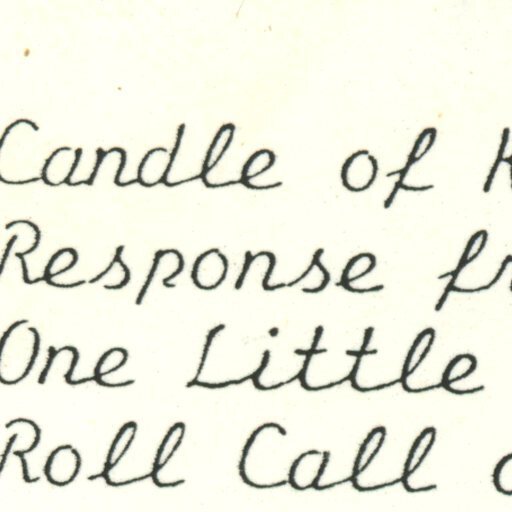 Candle of
Response
One Little
Roll Call